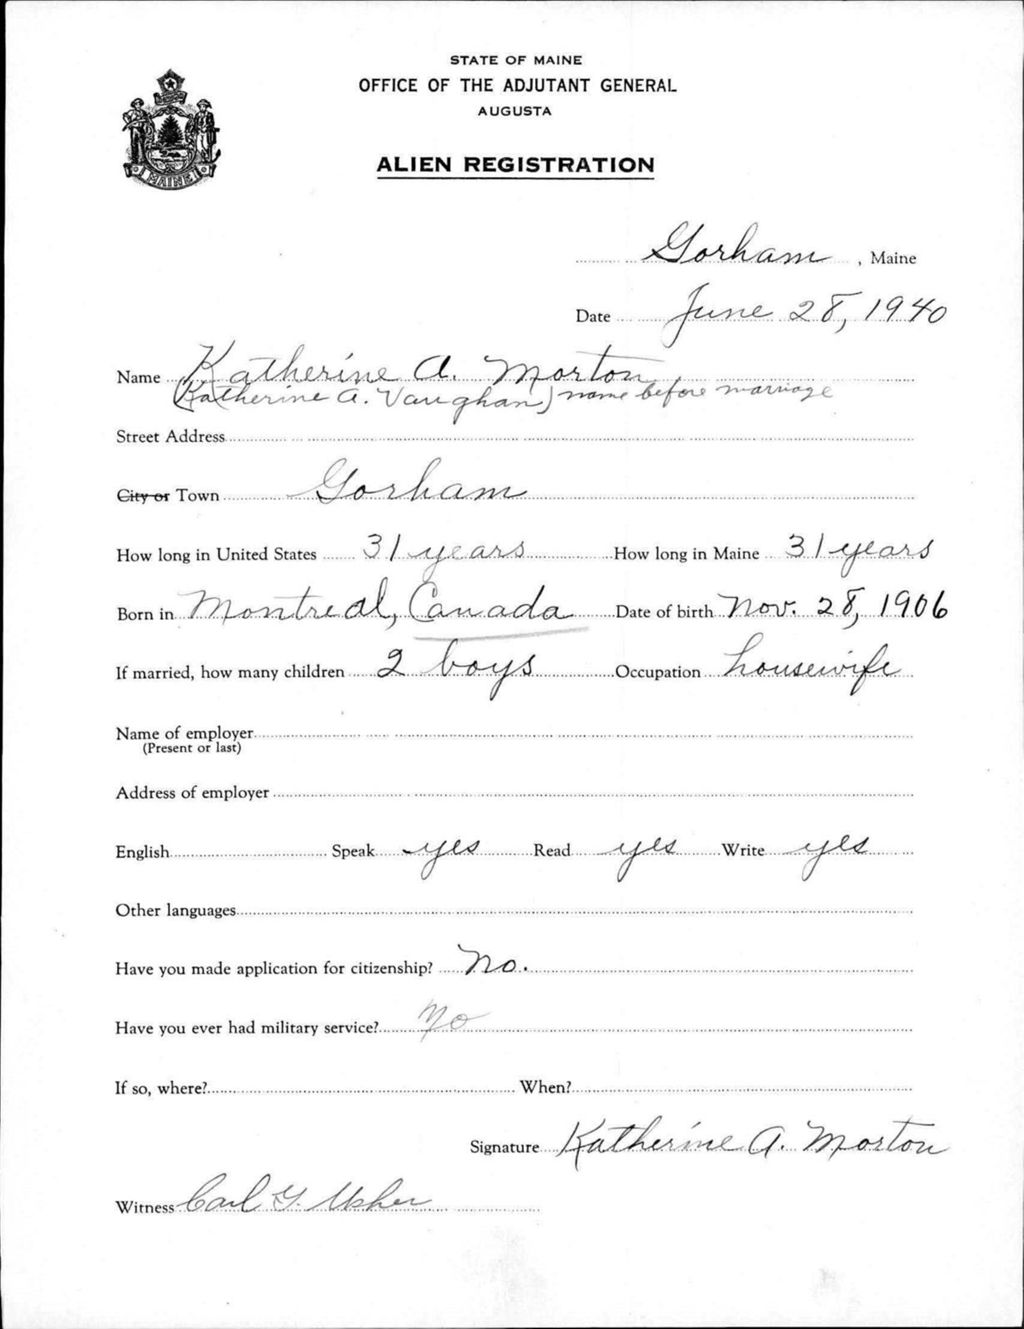 STATE OF MAINE
OFFICE OF THE ADJUTANT GENERAL
AUGUSTA
ALIEN REGISTRATION
MAINE
Gorham, Maine
Date June 28, 1940
Name Katherine A. Morton
(Katherine A. Vaughan) name before marriage
Street Address
City or Town Gorham
How long in United States 31 years How long in Maine 31 years
Born in Montreal, Canada Date of birth Nov. 28, 1906
If married, how many children 2 boys Occupation housewife
Name of employer
(Present or last)
Address of employer
English Speak yes Read yes Write yes
Other languages
Have you made application for citizenship? No.
Have you ever had military service? No
If so, where? When?
Signature Katherine A. Morton
Witness Carl G. Usher